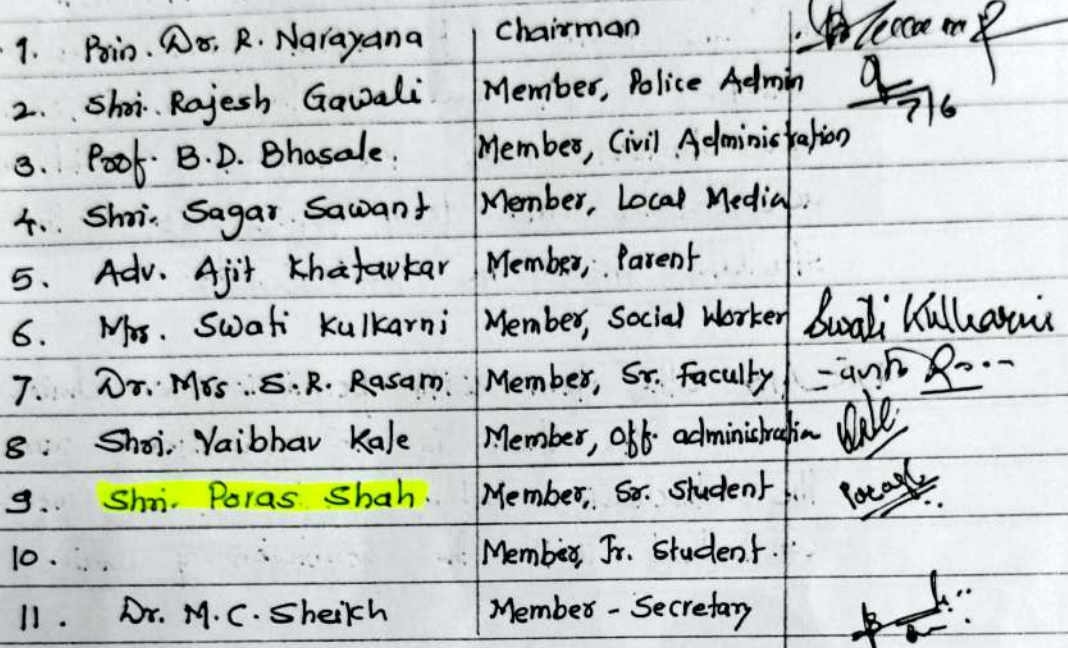 1. Prin. Dr. R. Narayana Chairman
2. Shri. Rajesh Gawali Member, Police Admin 7/6
3. Prof. B.D. Bhosale. Member, Civil Administration
4. Shri. Sagar Sawant Member, Local Media.
5. Adv. Ajit Khatavkar Member, Parent
6. Mrs. Swati Kulkarni Member, Social Worker Swati Kulkarni
7. Dr. Mrs. S.R. Rasam Member, Sr. Faculty
8. Shri. Vaibhav Kale Member, Off. administration
9. Shri. Paras Shah. Member, Sr. Student
10. Member, Jr. Student
11. Dr. M.C. Sheikh Member - Secretary